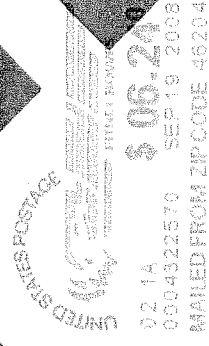 UNITED STATES POSTAGE
PITNEY BOWES
02 1A $ 06.24⁰
0004322570 SEP 19 2008
MAILED FROM ZIP CODE 46204